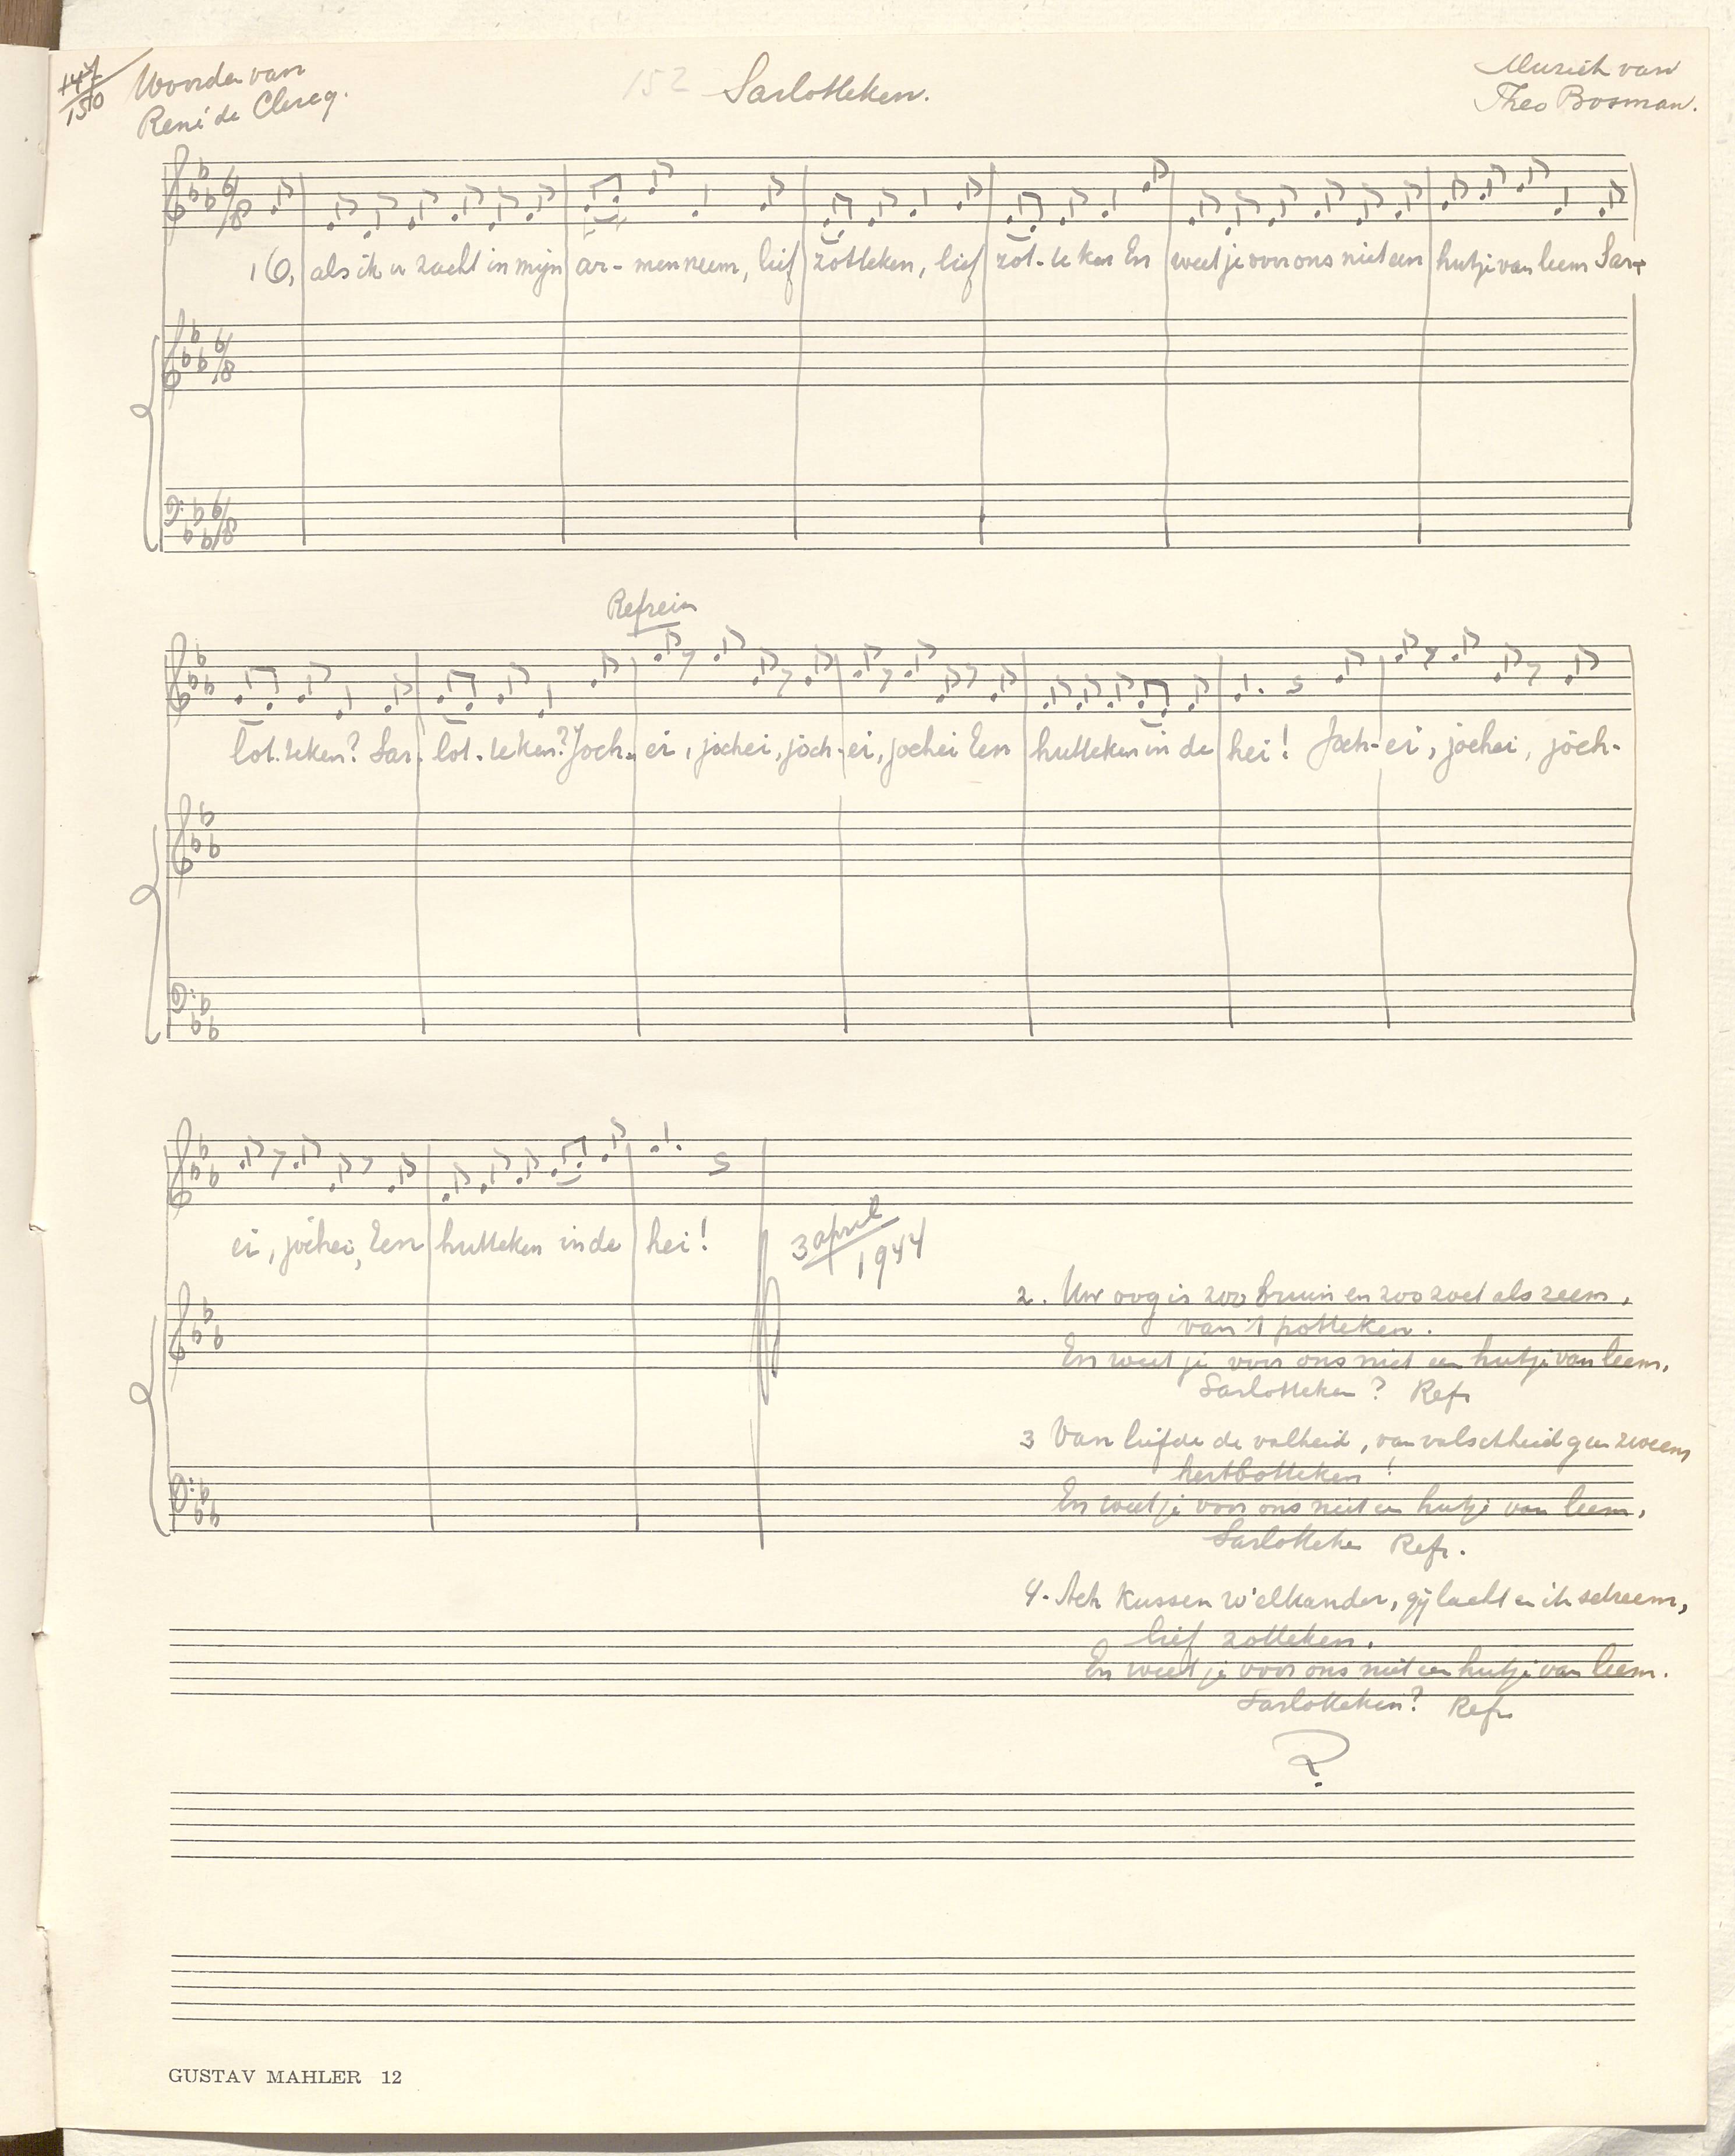 147
150
Woorden van
René de Clercq.
152
Sarlotteken.
Muziek van
Theo Bosman.
1 O, als ik u zacht in mijn ar- men neem, lief zotteken, lief zot- te ken En weet je voor ons niet een hutje van leem Sar-
Refrein
lot- teken? Sar- lot- teken? Joch- ei, jochei, joch- ei, jochei Een hutteken in de hei! Joch- ei, jochei, joch-
ei, jochei, Een hutteken in de hei!
3 april
1944
2. Uw oog is zoo bruin en zoo zoet als zeem,
van 't potteken.
En weet je voor ons niet een hutje van leem.
Sarlotteken? Refr
3 Van liefde de volheid, van valschheid geen zweem
hertbotteken!
En weet je voor ons niet een hutje van leem,
Sarlotteken Refr.
4. Ach kussen w'elkander, gij lacht en ik schreem,
lief zotteken.
En weet je voor ons niet een hutje van leem.
Sarlotteken? Refr.
GUSTAV MAHLER 12